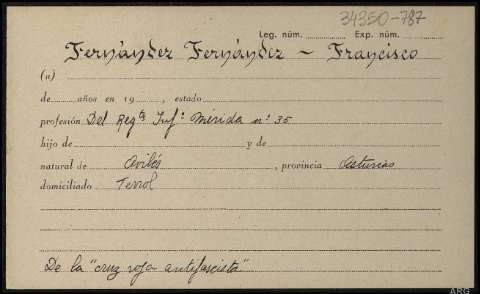 34350-787
Leg. núm. Exp. núm.
Fernández Fernández - Francisco
(a)
de años en 19 , estado
profesión Del Regtº Infª Mérida nº 35
hijo de y de
natural de Avilés , provincia Asturias
domiciliado Ferrol
De la "cruz roja antifascista"
ARG